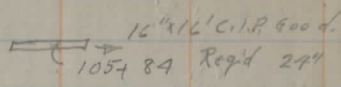 16"x16' C.I.P. Good.
105+84 Req'd 24"